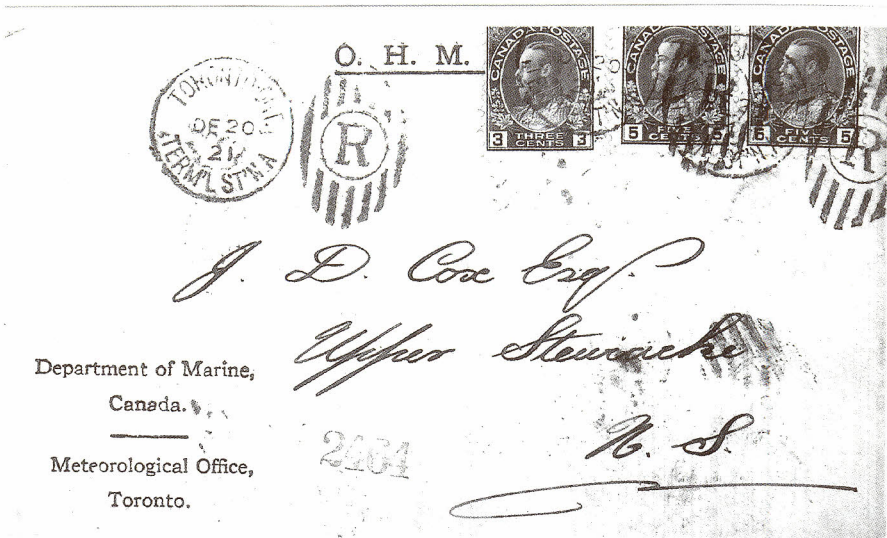 O. H. M.
CANADA POSTAGE
3 THREE CENTS 3
CANADA POSTAGE
5 FIVE CENTS 5
CANADA POSTAGE
5 FIVE CENTS 5
TORONTO
DE 20
21
TERM'L ST'N A
R
R
J. D. Cox Esq.
Upper Stewiacke
N. S.
Department of Marine,
Canada.
Meteorological Office,
Toronto.
2464